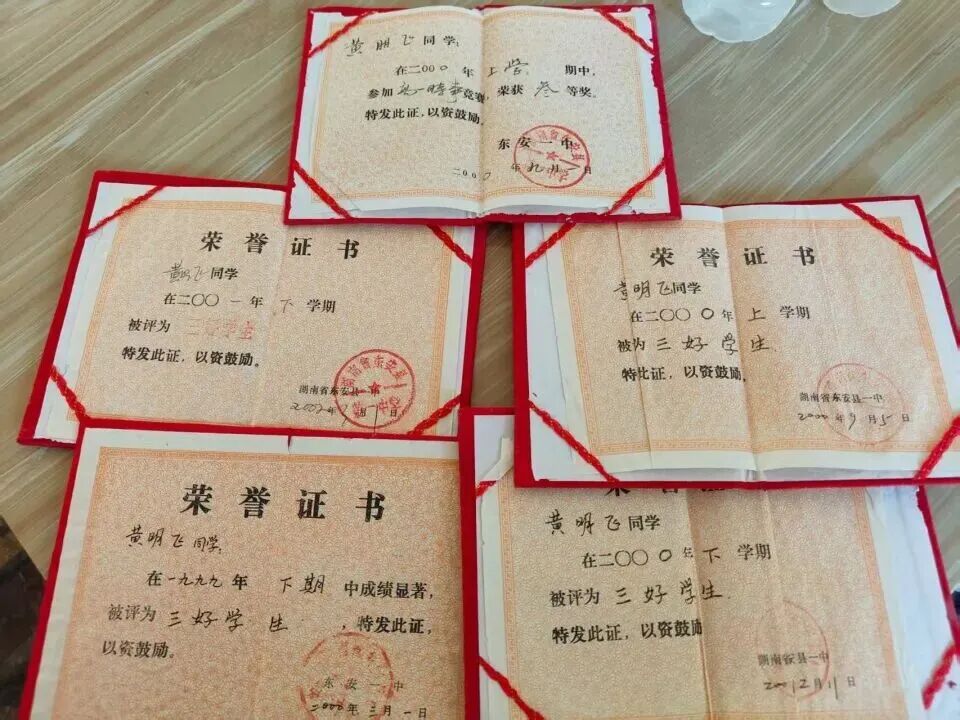 黄明飞同学:
在二000年上学期中,
参加高一时事竞赛,荣获叁等奖。
特发此证,以资鼓励。
东安一中
二000年九月一日
荣誉证书
黄明飞同学
在二〇〇一年下学期
被评为三好学生
特发此证,以资鼓励。
湖南省东安县一中
2002年 月 日
荣誉证书
黄明飞同学
在二〇〇〇年上学期
被为三好学生
特此证,以资鼓励。
湖南省东安县一中
2000年9月5日
荣誉证书
黄明飞同学:
在一九九九年下期中成绩显著,
被评为三好学生,特发此证,
以资鼓励。
东安一中
2000年三月一日
黄明飞同学
在二〇〇〇年下学期
被评为三好学生
特发此证,以资鼓励
湖南安县一中
20012月11日